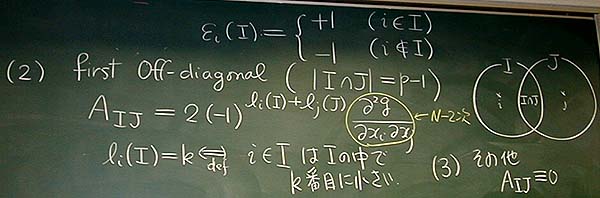 εᵢ(I) = { +1 (i∈I)
−1 (i∉I)
(2) first Off-diagonal (|I∩J| = p−1)
A_{IJ} = 2(−1)^{lᵢ(I)+lⱼ(J)} ∂²g/∂xᵢ∂xⱼ ← N−2次
lᵢ(I) = k ⟺def i∈I は Iの中で
k番目に小さい
I J
i I∩J j
(3) その他
A_{IJ} ≡ 0